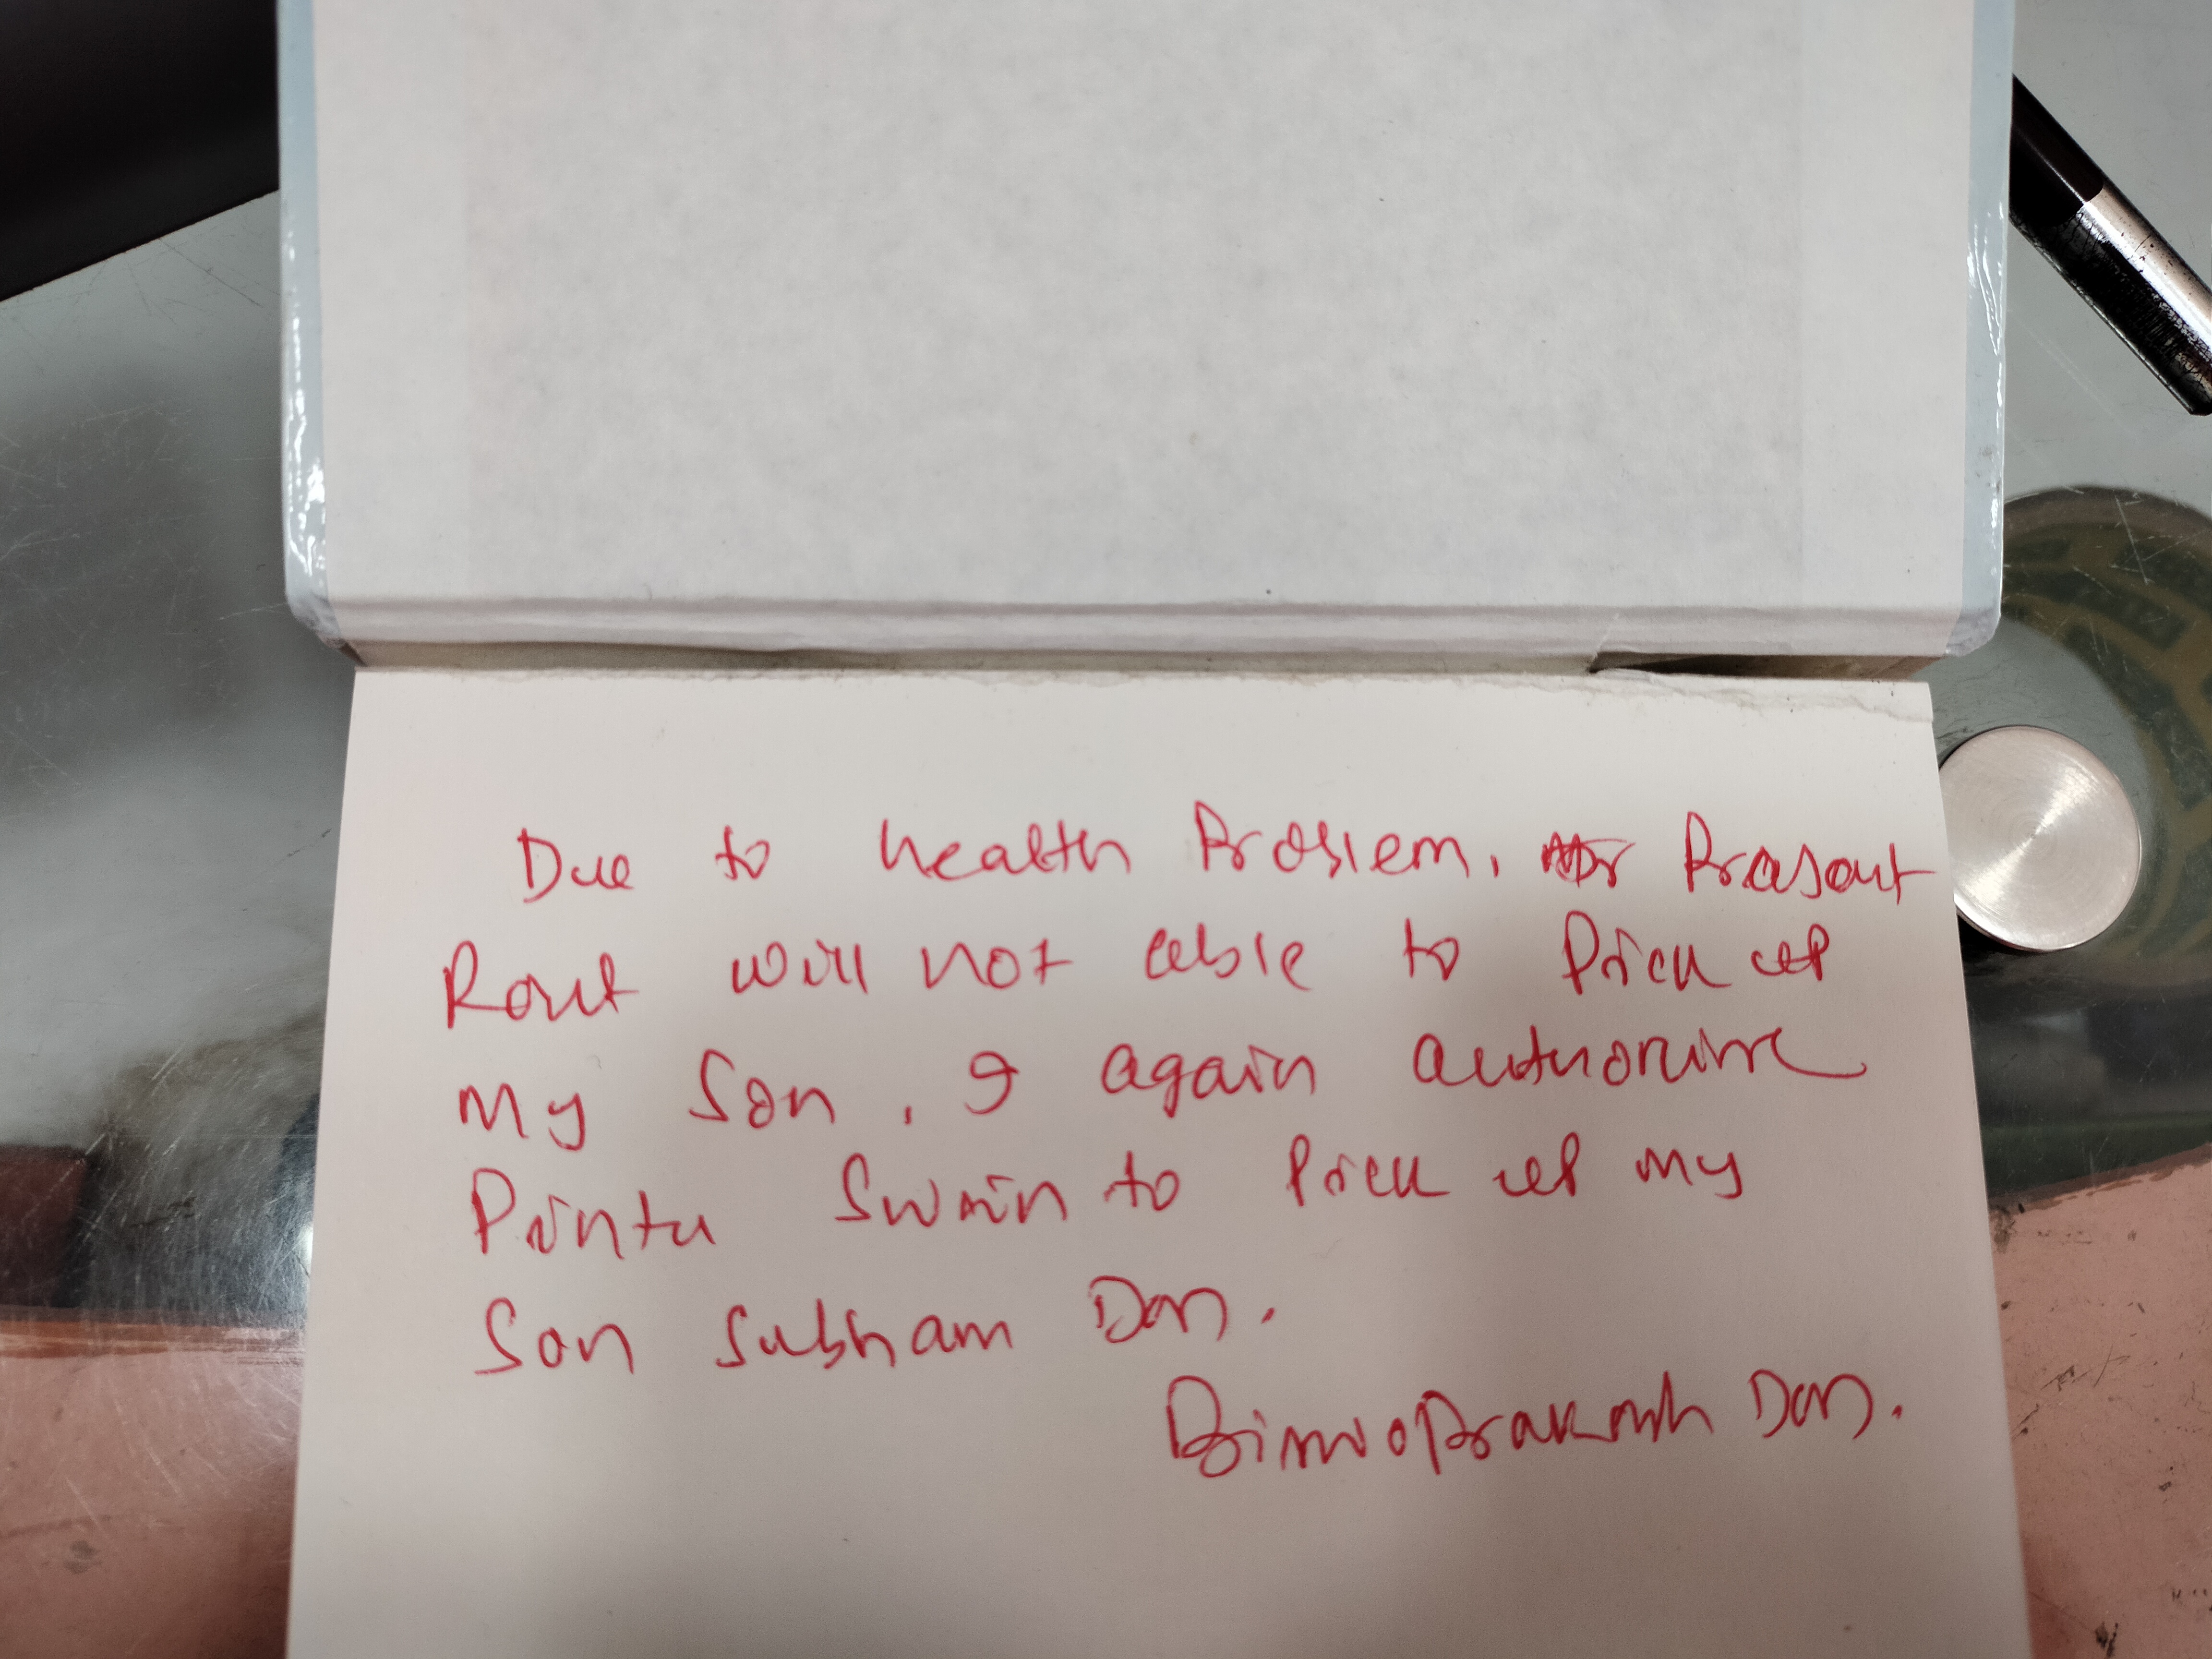 Due to health Problem, Mr Prasant
Rout will not able to Pick up
my Son, I again authorise
Pintu Swain to Pick up my
Son Subham Das.
Das.